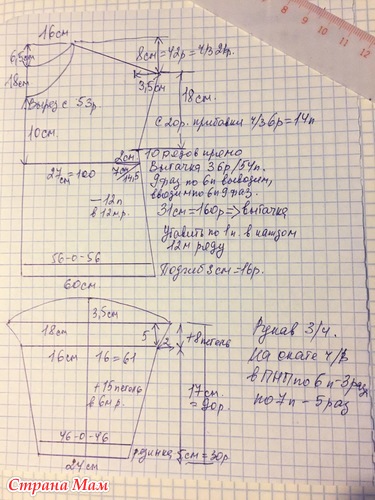 16см
6,5см
18см
8см=42р=4/32р.
3,5см
18см.
Вырез с 53р.
10см
С 20р. прибавки 4/36р=14п
2см
10 рядов прямо
27см=100
7см
14,5
Вытачка 36р/54п.
9 раз по 6п вывозим,
ввозим по 6п 9 раз.
-12п
в 12м р.
31см=160р=>вытачка
Убавить по 1п. в каждом
12м ряду
56-0-56
Подгиб 3см=16р.
60см
3,5см
18см
5
2
+8 петель
Рукав 3/4.
16см
16=61
На окате ч/з
в ПНП по 6п-3раз
по 7п-5раз
+15 петель
в 6м р.
17см
=90р.
46-0-46
резинка 5см=30р.
24см
7 8 9 10 11 12
Страна Мам